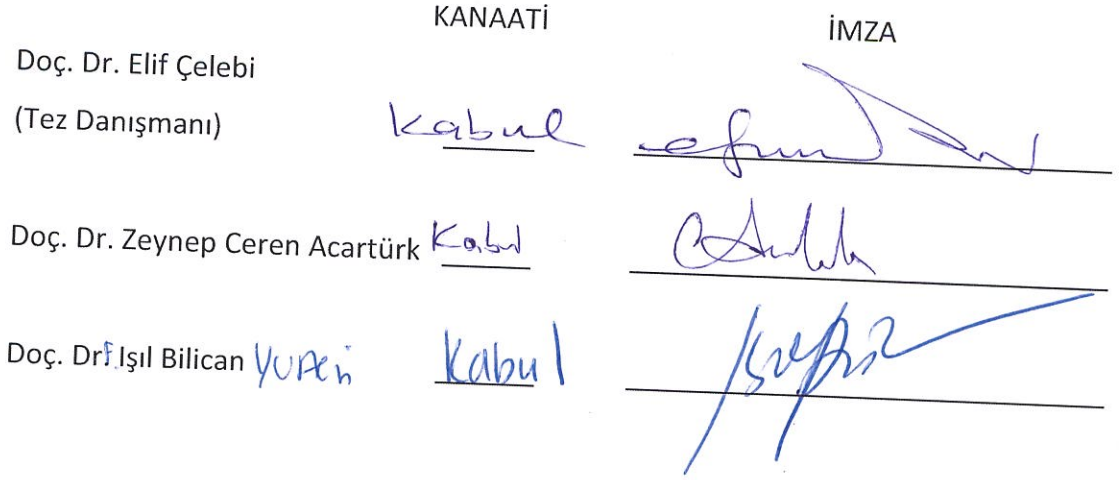 KANAATİ İMZA
Doç. Dr. Elif Çelebi
(Tez Danışmanı) Kabul
Doç. Dr. Zeynep Ceren Acartürk Kabul
Doç. Dr. F. Işıl Bilican Kabul